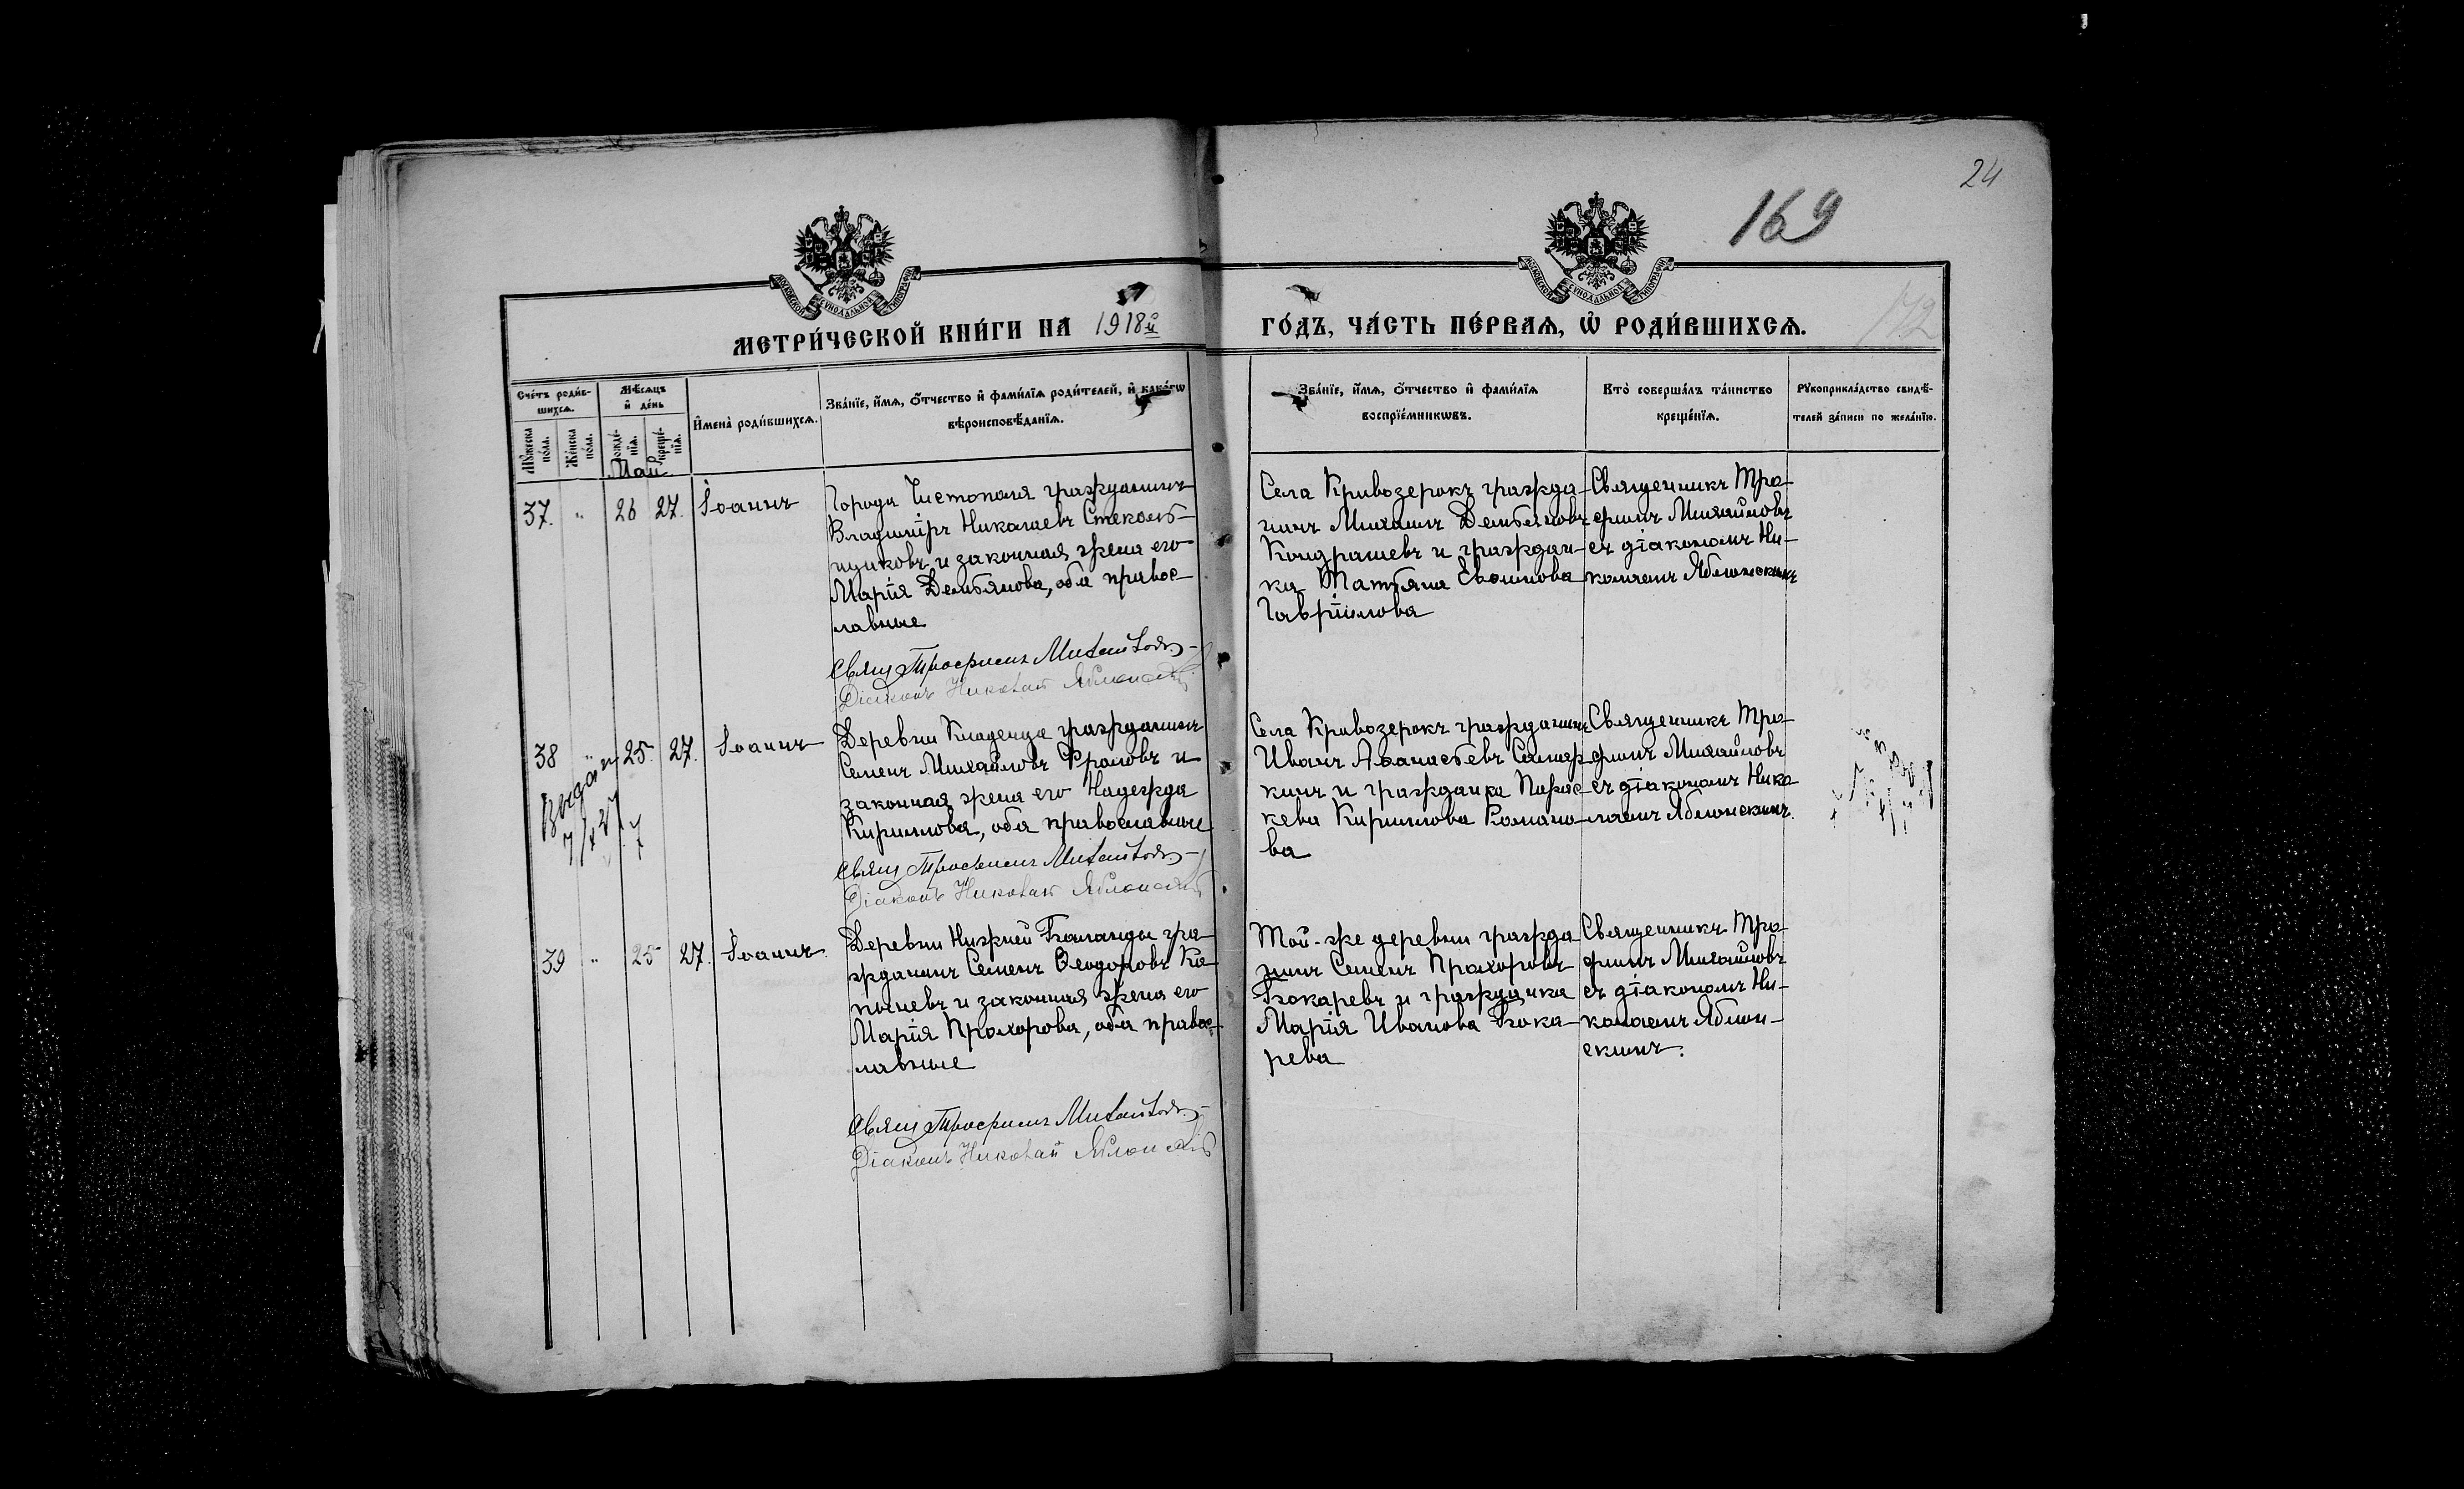 24
169
МЕТРИ́ЧЕСКОЙ КНИ́ГИ НА 1918й
ГО́ДЪ, ЧА́СТЬ ПЕ́РВАѦ, Ѡ҆ РОДИ́ВШИХСѦ.
Сче́тъ роди́в-
шихсѧ.
Мꙋ́жеска по́ла.
Же́нска по́ла.
Мѣ́сѧцъ
и҆ де́нь
рожде́-
нїѧ.
креще́-
нїѧ.
И҆мена̀ роди́вшихсѧ.
Зва́нїе, и҆́мѧ, ѻ҆́тчество и҆ фами́лїѧ роди́телей, и҆ како́гѡ
вѣроисповѣ́данїѧ.
Зва́нїе, и҆́мѧ, ѻ҆́тчество и҆ фами́лїѧ
воспрїе́мникѡвъ.
Кто̀ соверша́лъ та́инство
креще́нїѧ.
Рꙋкоприкла́дство свидѣ́-
телей за́писи по жела́нїю.
Май
37. " 26 27. Іоаннъ
Города Чистополя гражданинъ
Владиміръ Николаевъ Стеколь-
щиковъ и законная жена его
Марія Демьянова, оба правос-
лавные
Свящ Трофимъ Михайловъ
Діаконъ Николай Яблонскій
Села Кривозерокъ гражда-
нинъ Михаилъ Демьяновъ
Кондрашевъ и граждан-
ка Татьяна Евфимова
Гавріилова
Священникъ Тро-
фимъ Михайловъ
съ діакономъ Ни-
колаемъ Яблонскимъ
38 " 25. 27. Іоаннъ
Выдан
Деревни Кладенца гражданинъ
Семенъ Михайловъ Фроловъ и
законная жена его Надежда
Кириллова, оба православные
Свящ Трофимъ Михайловъ
Діаконъ Николай Яблонскій
Села Кривозерокъ гражданинъ
Иванъ Аѳанасьевъ Самар-
кинъ и гражданка Парас-
кева Кириллова Романо-
ва
Священникъ Тро-
фимъ Михайловъ
съ діакономъ Нико-
лаемъ Яблонскимъ.
39 " 25 27. Іоаннъ.
Деревни Нижней гра-
жданинъ Семенъ Ѳеодоровъ Ка-
и законная жена его
Марія Прохорова, оба правос-
лавные
Свящ Трофимъ Михайловъ
Діаконъ Николай Яблонскій
Той-же деревни гражда-
нинъ Семенъ Прохоровъ
Токаревъ и гражданка
Марія Иванова Тока-
рева
Священникъ Тро-
фимъ Михайловъ
съ діакономъ Ни-
колаемъ Яблон-
скимъ.